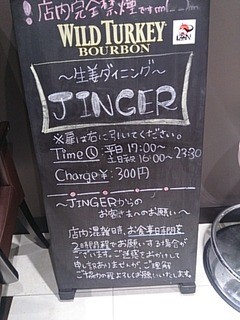 ！店内完全禁煙です
WILD TURKEY
BOURBON
～生姜ダイニング～
JINGER
※扉は右に引いてください。
Time 平日 17:00～
土日祝 16:00～ 23:30
Charge¥: 300円
～JINGERからの
お客さまへのお願い～
店内混雑時、お食事時間を
2時間程でお願いする場合が
ございます。ご迷惑をおかけして
申し訳ありませんが、ご理解
ご協力の程よろしくお願いいたします。